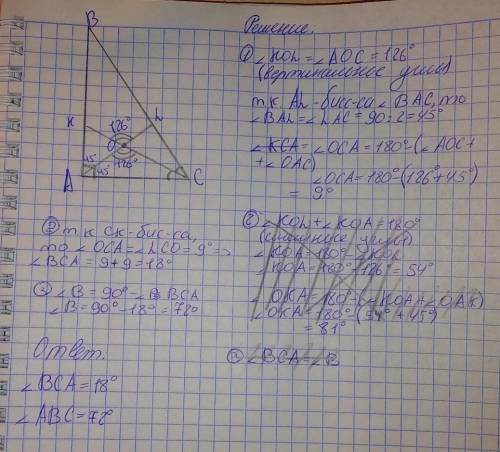 B
K
L
126°
O
126°
45°
45
A
C
Решение:
① ∠KOL = ∠AOC = 126°
(вертикальные углы)
т.к. AL - бис-са ∠BAC, то
∠BAL = ∠LAC = 90 : 2 = 45°
∠KCA = ∠OCA = 180° - (∠AOC +
+ ∠OAC)
∠OCA = 180° - (126° + 45°)
= 9°
② т.к CK - бис-са,
то ∠OCA = ∠LCO = 9° =>
∠BCA = 9 + 9 = 18°
③ ∠B = 90° - ∠BCA
∠B = 90° - 18° = 72°
Ответ.
∠BCA = 18°
∠ABC = 72°
② ∠KOL + ∠KOA = 180°
(смежные углы)
∠KOA = 180° - ∠KOL
∠KOA = 180° - 126° = 54°
∠OKA = 180° - (∠KOA + ∠OAK)
∠OKA = 180° - (54° + 45°)
= 81°
③ ∠BCA = ∠B